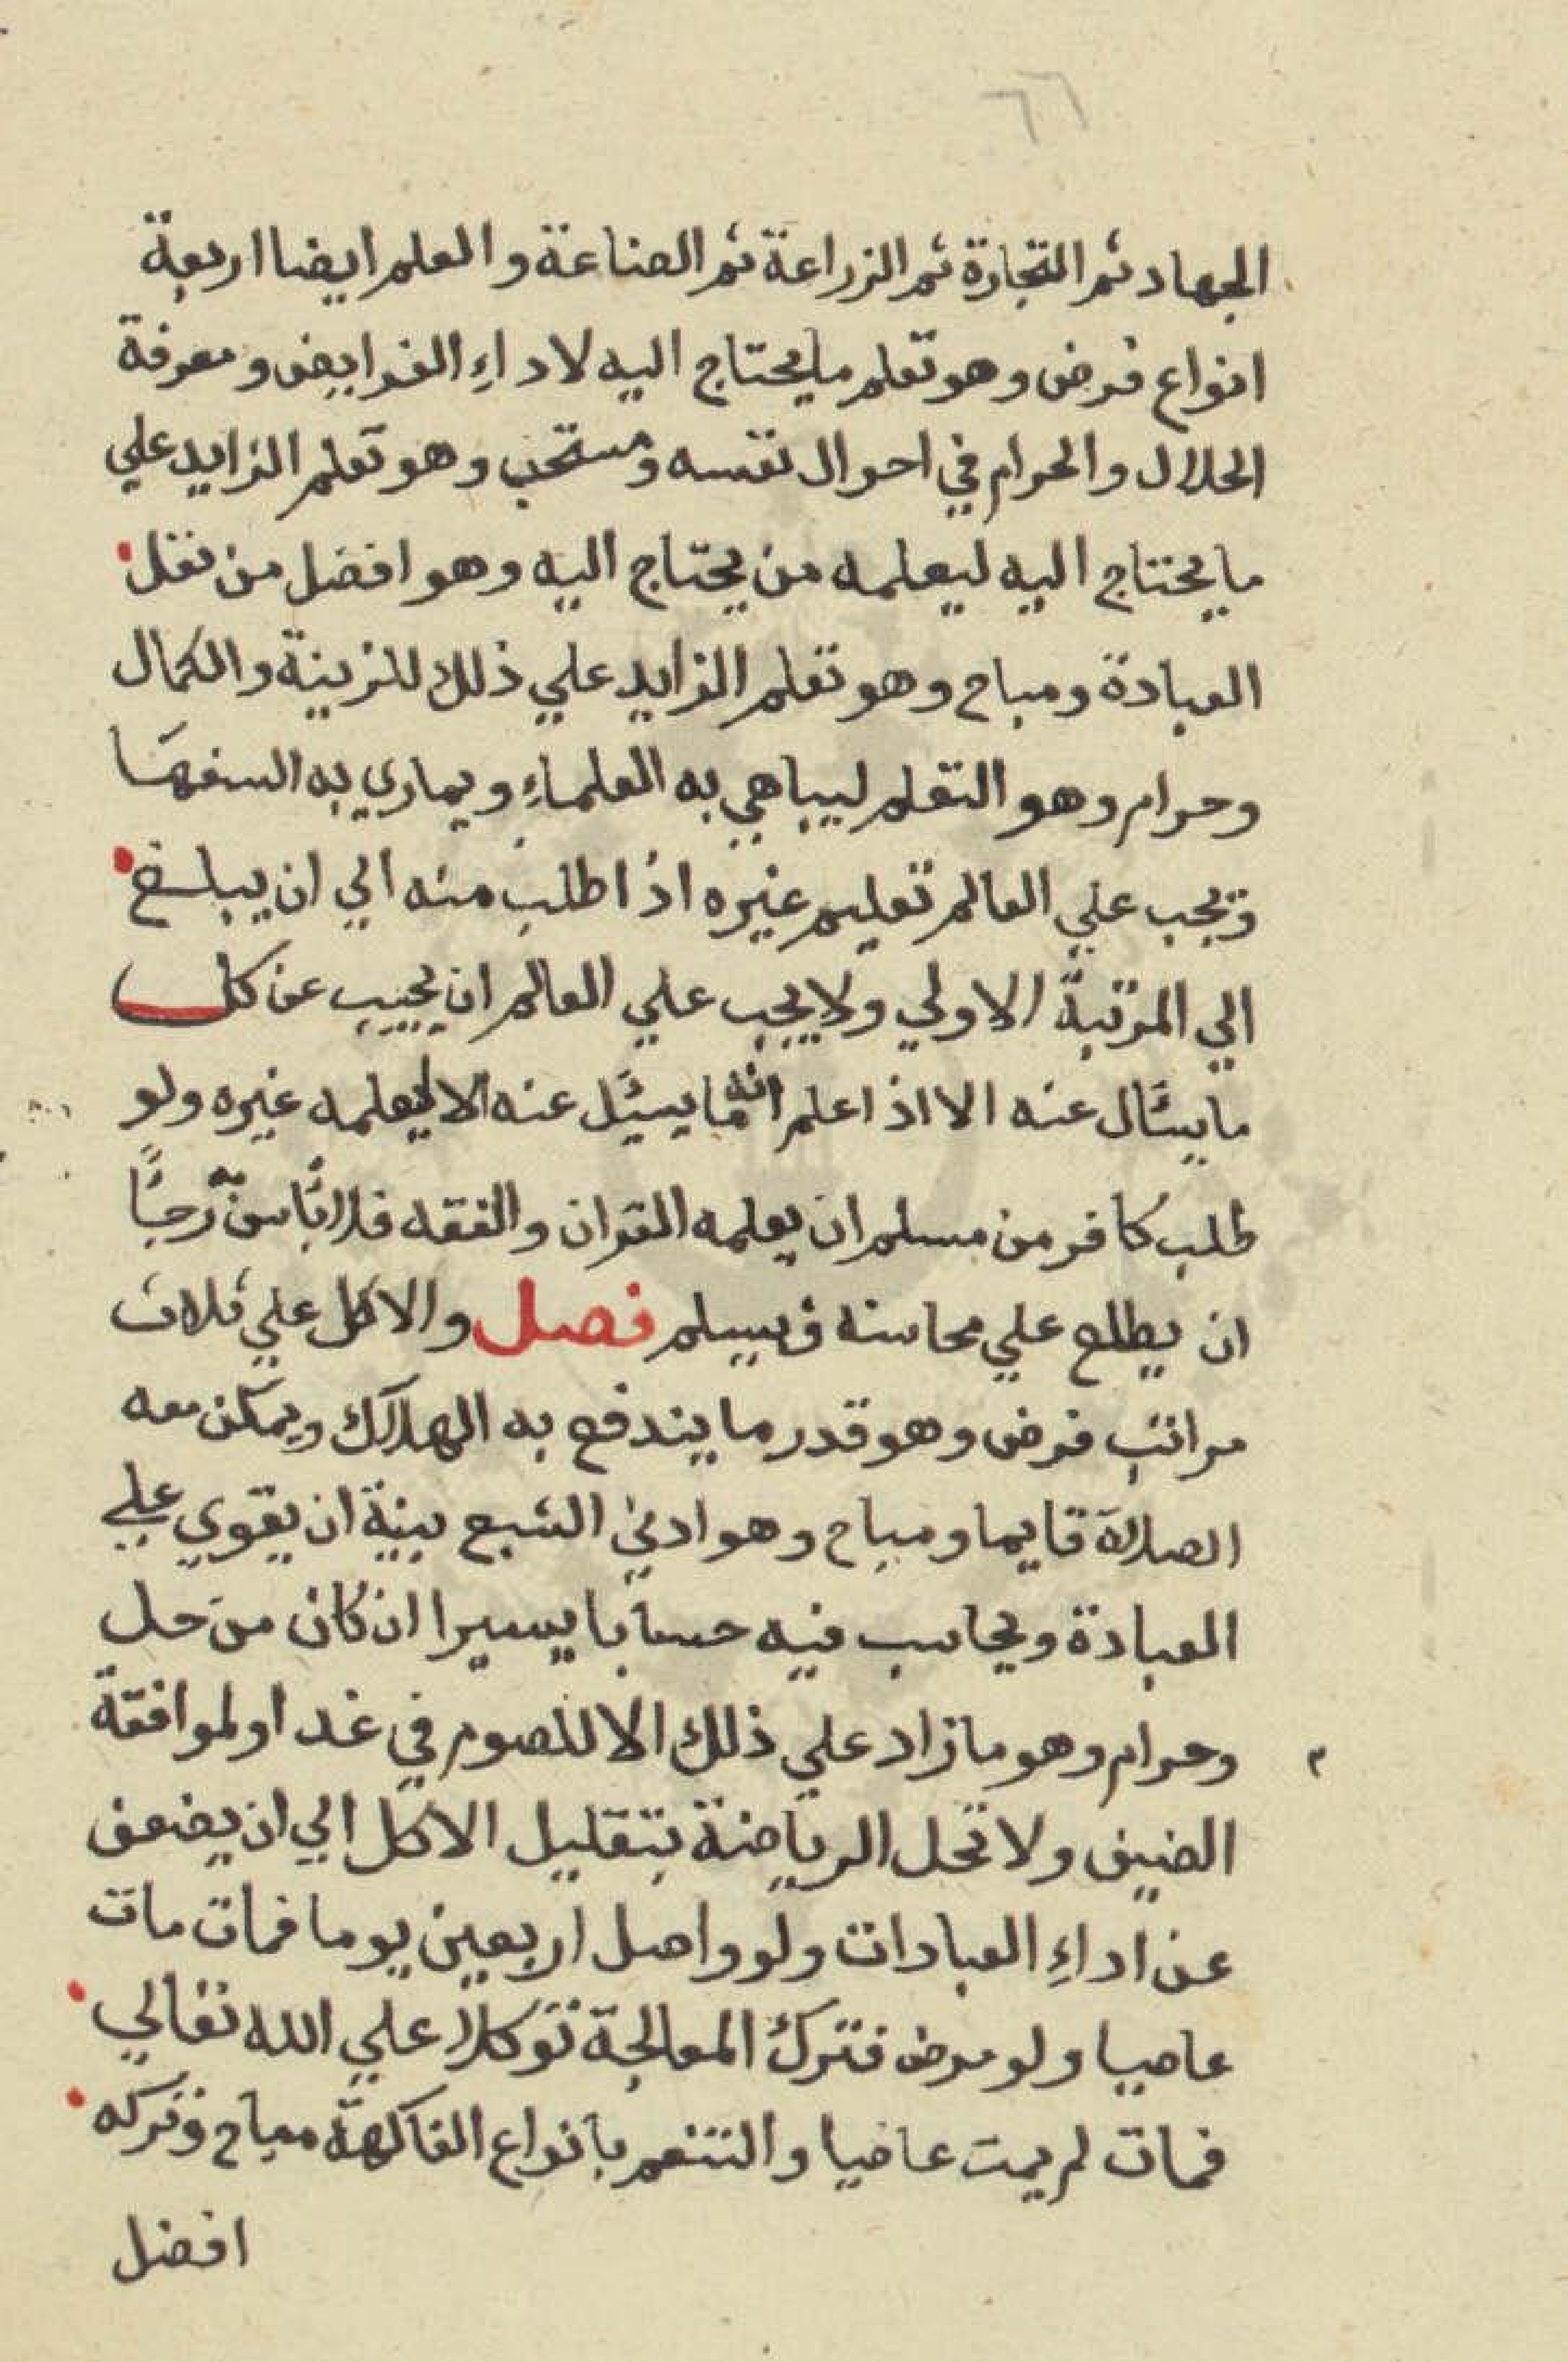 ٦٦
الجهاد ثم التجارة ثم الزراعة ثم الصناعة والعلم ايضا اربعة
انواع فرض وهو تعلم ما يحتاج اليه لاداءِ الفرايض ومعرفة
الحلال والحرام في احوال نفسه ومستحب وهو تعلم الزايد علي
ما يحتاج اليه ليعلمه من يحتاج اليه وهو افضل من نفل
العبادة ومباح وهو تعلم الزايد علي ذلك للزينة والكمال
وحرام وهو التعلم ليباهي به العلماءِ ويماري به السفها
ويجب علي العالم تعليم غيره اذا طلب منه الي ان يبلغ
الي المرتبة الاولي ولا يجب علي العالم ان يجيب عن كل
ما يسَٔال عنه الا اذا علم انه ما يسئَل عنه الا ليعلمه غيره ولو
طلب كافر من مسلم ان يعلمه القران والفقه فلا باس رجا
ان يطلع علي محاسنه فيسلم فصل والاكل علي ثلاث
مراتب فرض وهو قدر ما يندفع به الهلاك ويمكن معه
الصلاة قايما ومباح وهو ادني الشبع بنية ان يقوي علي
العبادة ويحاسب فيه حسابا يسيرا ان كان من حل
وحرام وهو ما زاد علي ذلك الا للصوم في غد او لموافقة
الضيف ولا تحل الرياضة بتقليل الاكل الي ان يضعف
عن اداءِ العبادات ولو واصل اربعين يوما فمات مات
عاصيا ولو مرض فترك المعالجة توكلا علي الله تعالي
فمات لم يمت عاصيا والتنعم بانواع الفاكهة مباح وتركه
افضل